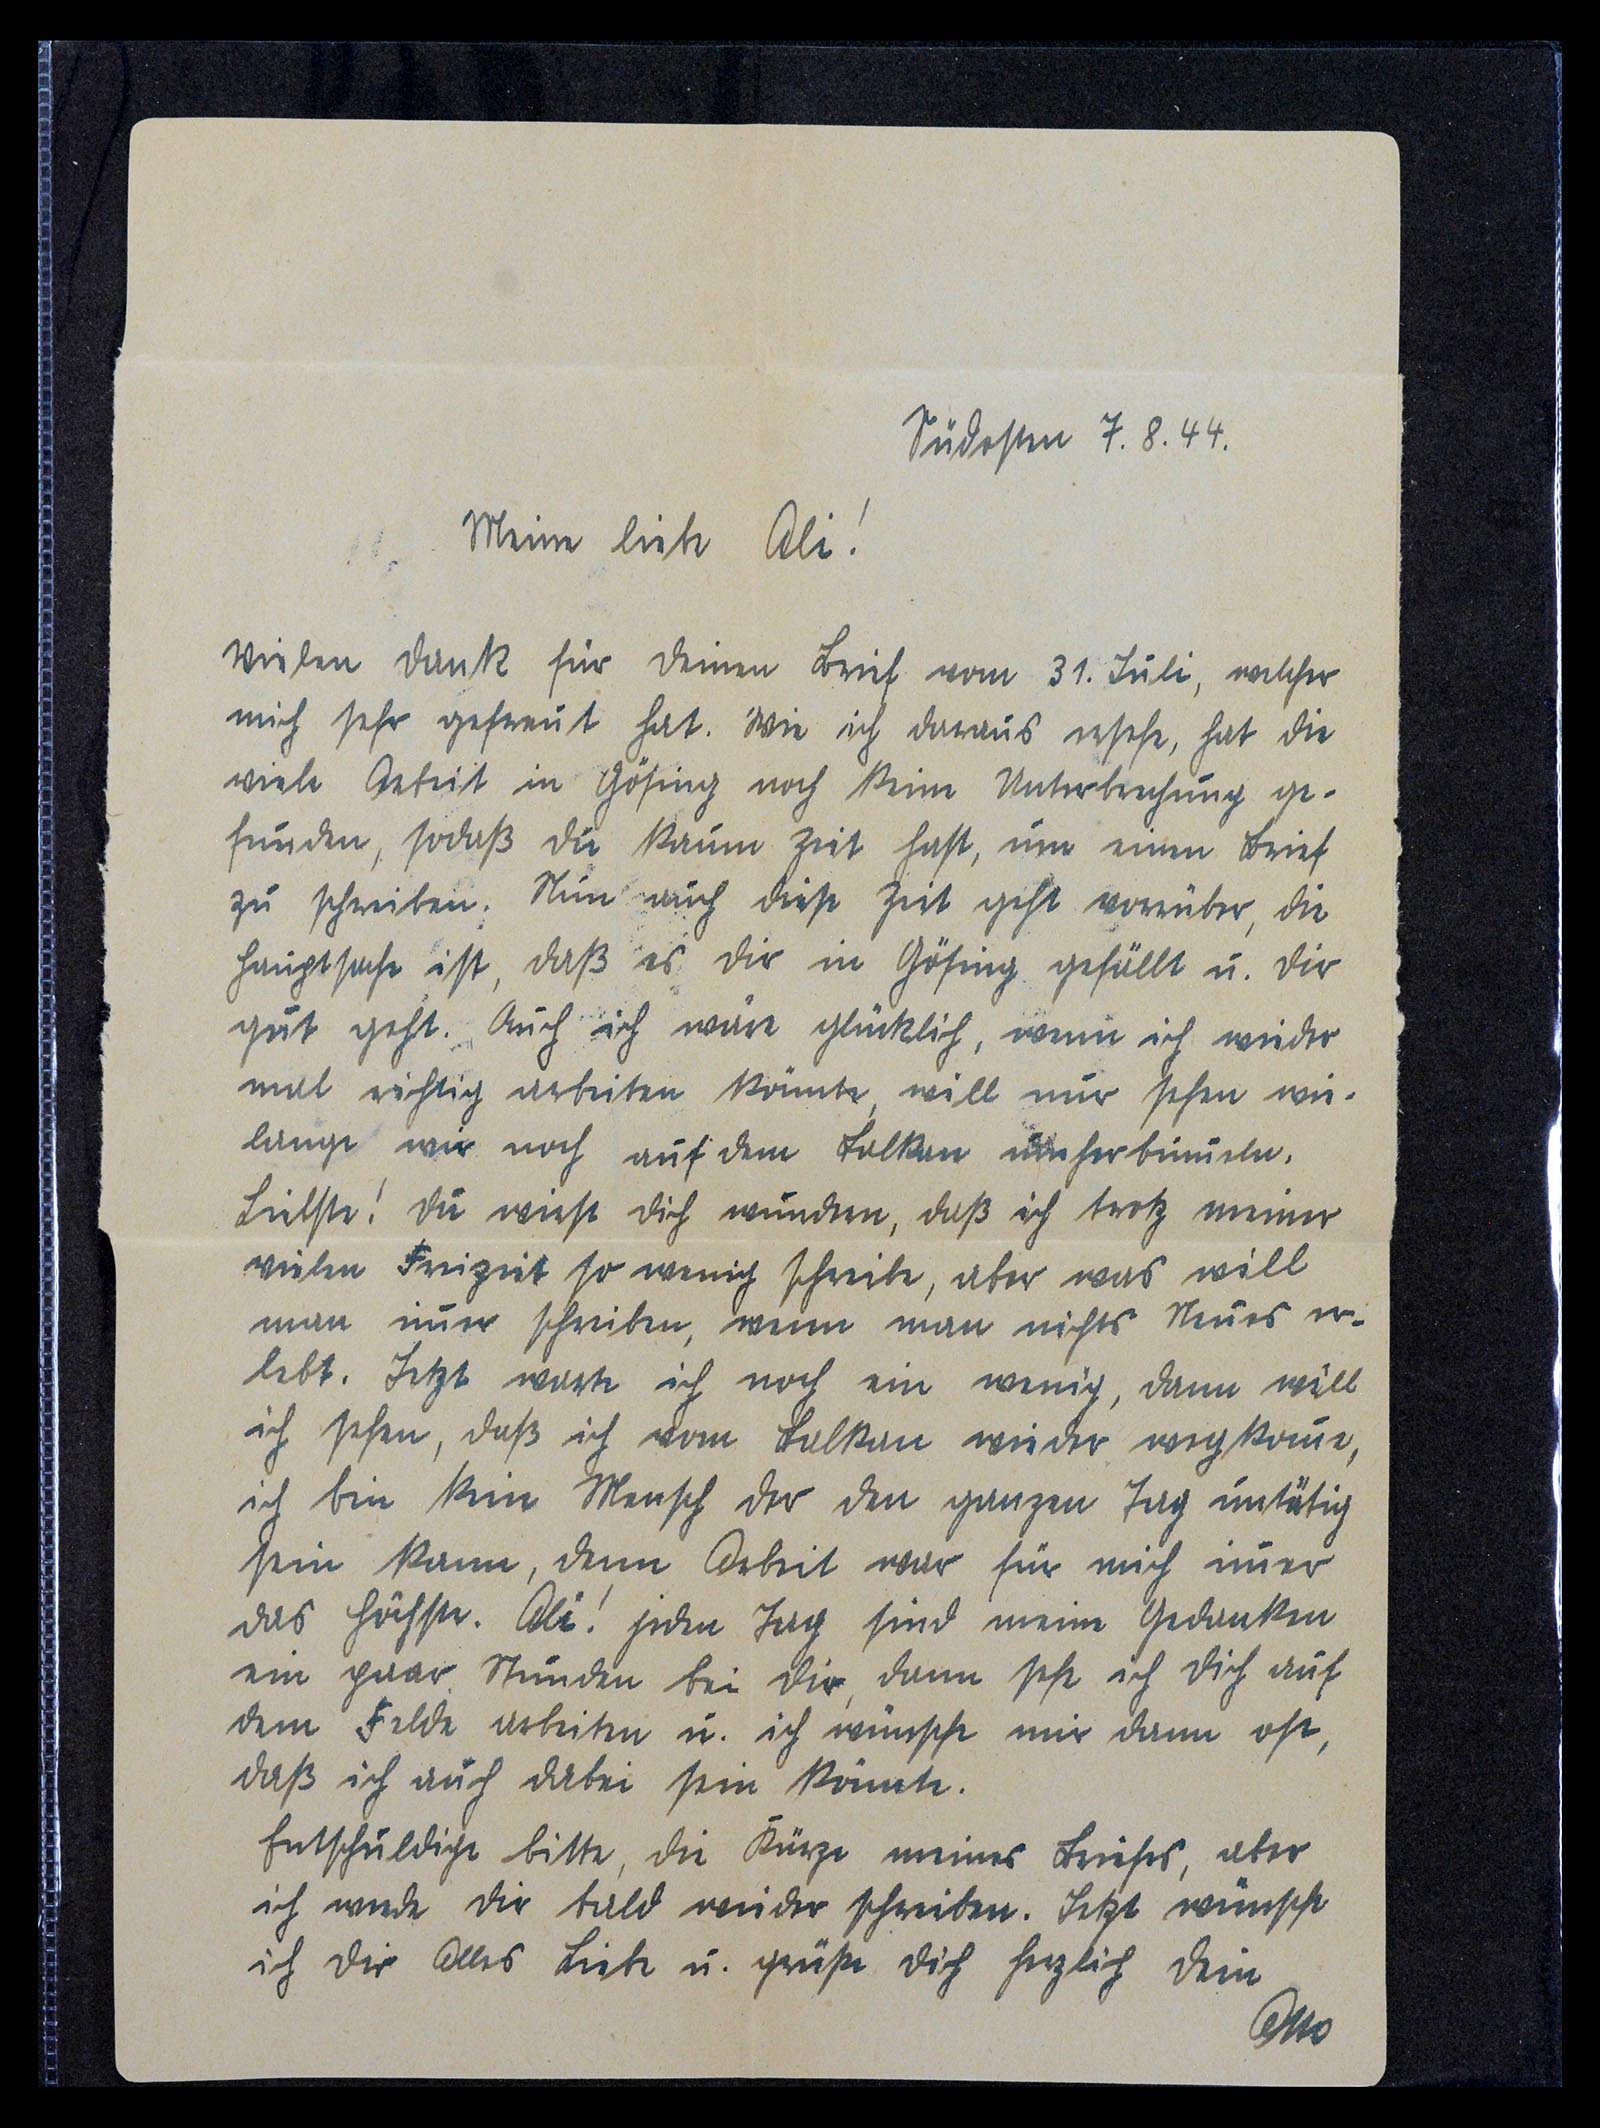 Südosten 7.8.44.
Meine liebe Ali!
Vielen Dank für Deinen Brief vom 31. Juli, welcher
mich sehr gefreut hat. Wie ich daraus ersehe, hat die
viele Arbeit in Gösing noch keine Unterbrechung ge-
funden, sodaß Du kaum Zeit hast, um einen Brief
zu schreiben. Nun auch diese Zeit geht vorrüber, die
Hauptsache ist, daß es Dir in Gösing gefällt u. Dir
gut geht. Auch ich wäre glücklich, wenn ich wieder
mal richtig arbeiten könnte, will nur sehen wie-
lange wir noch auf dem Balkan umherbum̄eln.
Liebste! Du wirst Dich wundern, daß ich trotz meiner
vielen Freizeit so wenig schreibe, aber was will
man im̄er schreiben, wenn man nichts Neues er-
lebt. Jetzt warte ich noch ein wenig, dann will
ich sehen, daß ich vom Balkan wieder wegkom̄e,
ich bin kein Mensch der den ganzen Tag untätig
sein kann, denn Arbeit war für mich im̄er
das höchste. Ali! jeden Tag sind meine Gedanken
ein paar Stunden bei Dir, dann sehe ich Dich auf
dem Felde arbeiten u. ich wünsche mir dann oft,
daß ich auch dabei sein könnte.
Entschuldige bitte, die Kürze meines Briefes, aber
ich werde Dir bald wieder schreiben. Jetzt wünsche
ich Dir Alles Liebe u. grüße Dich herzlich Dein
Otto